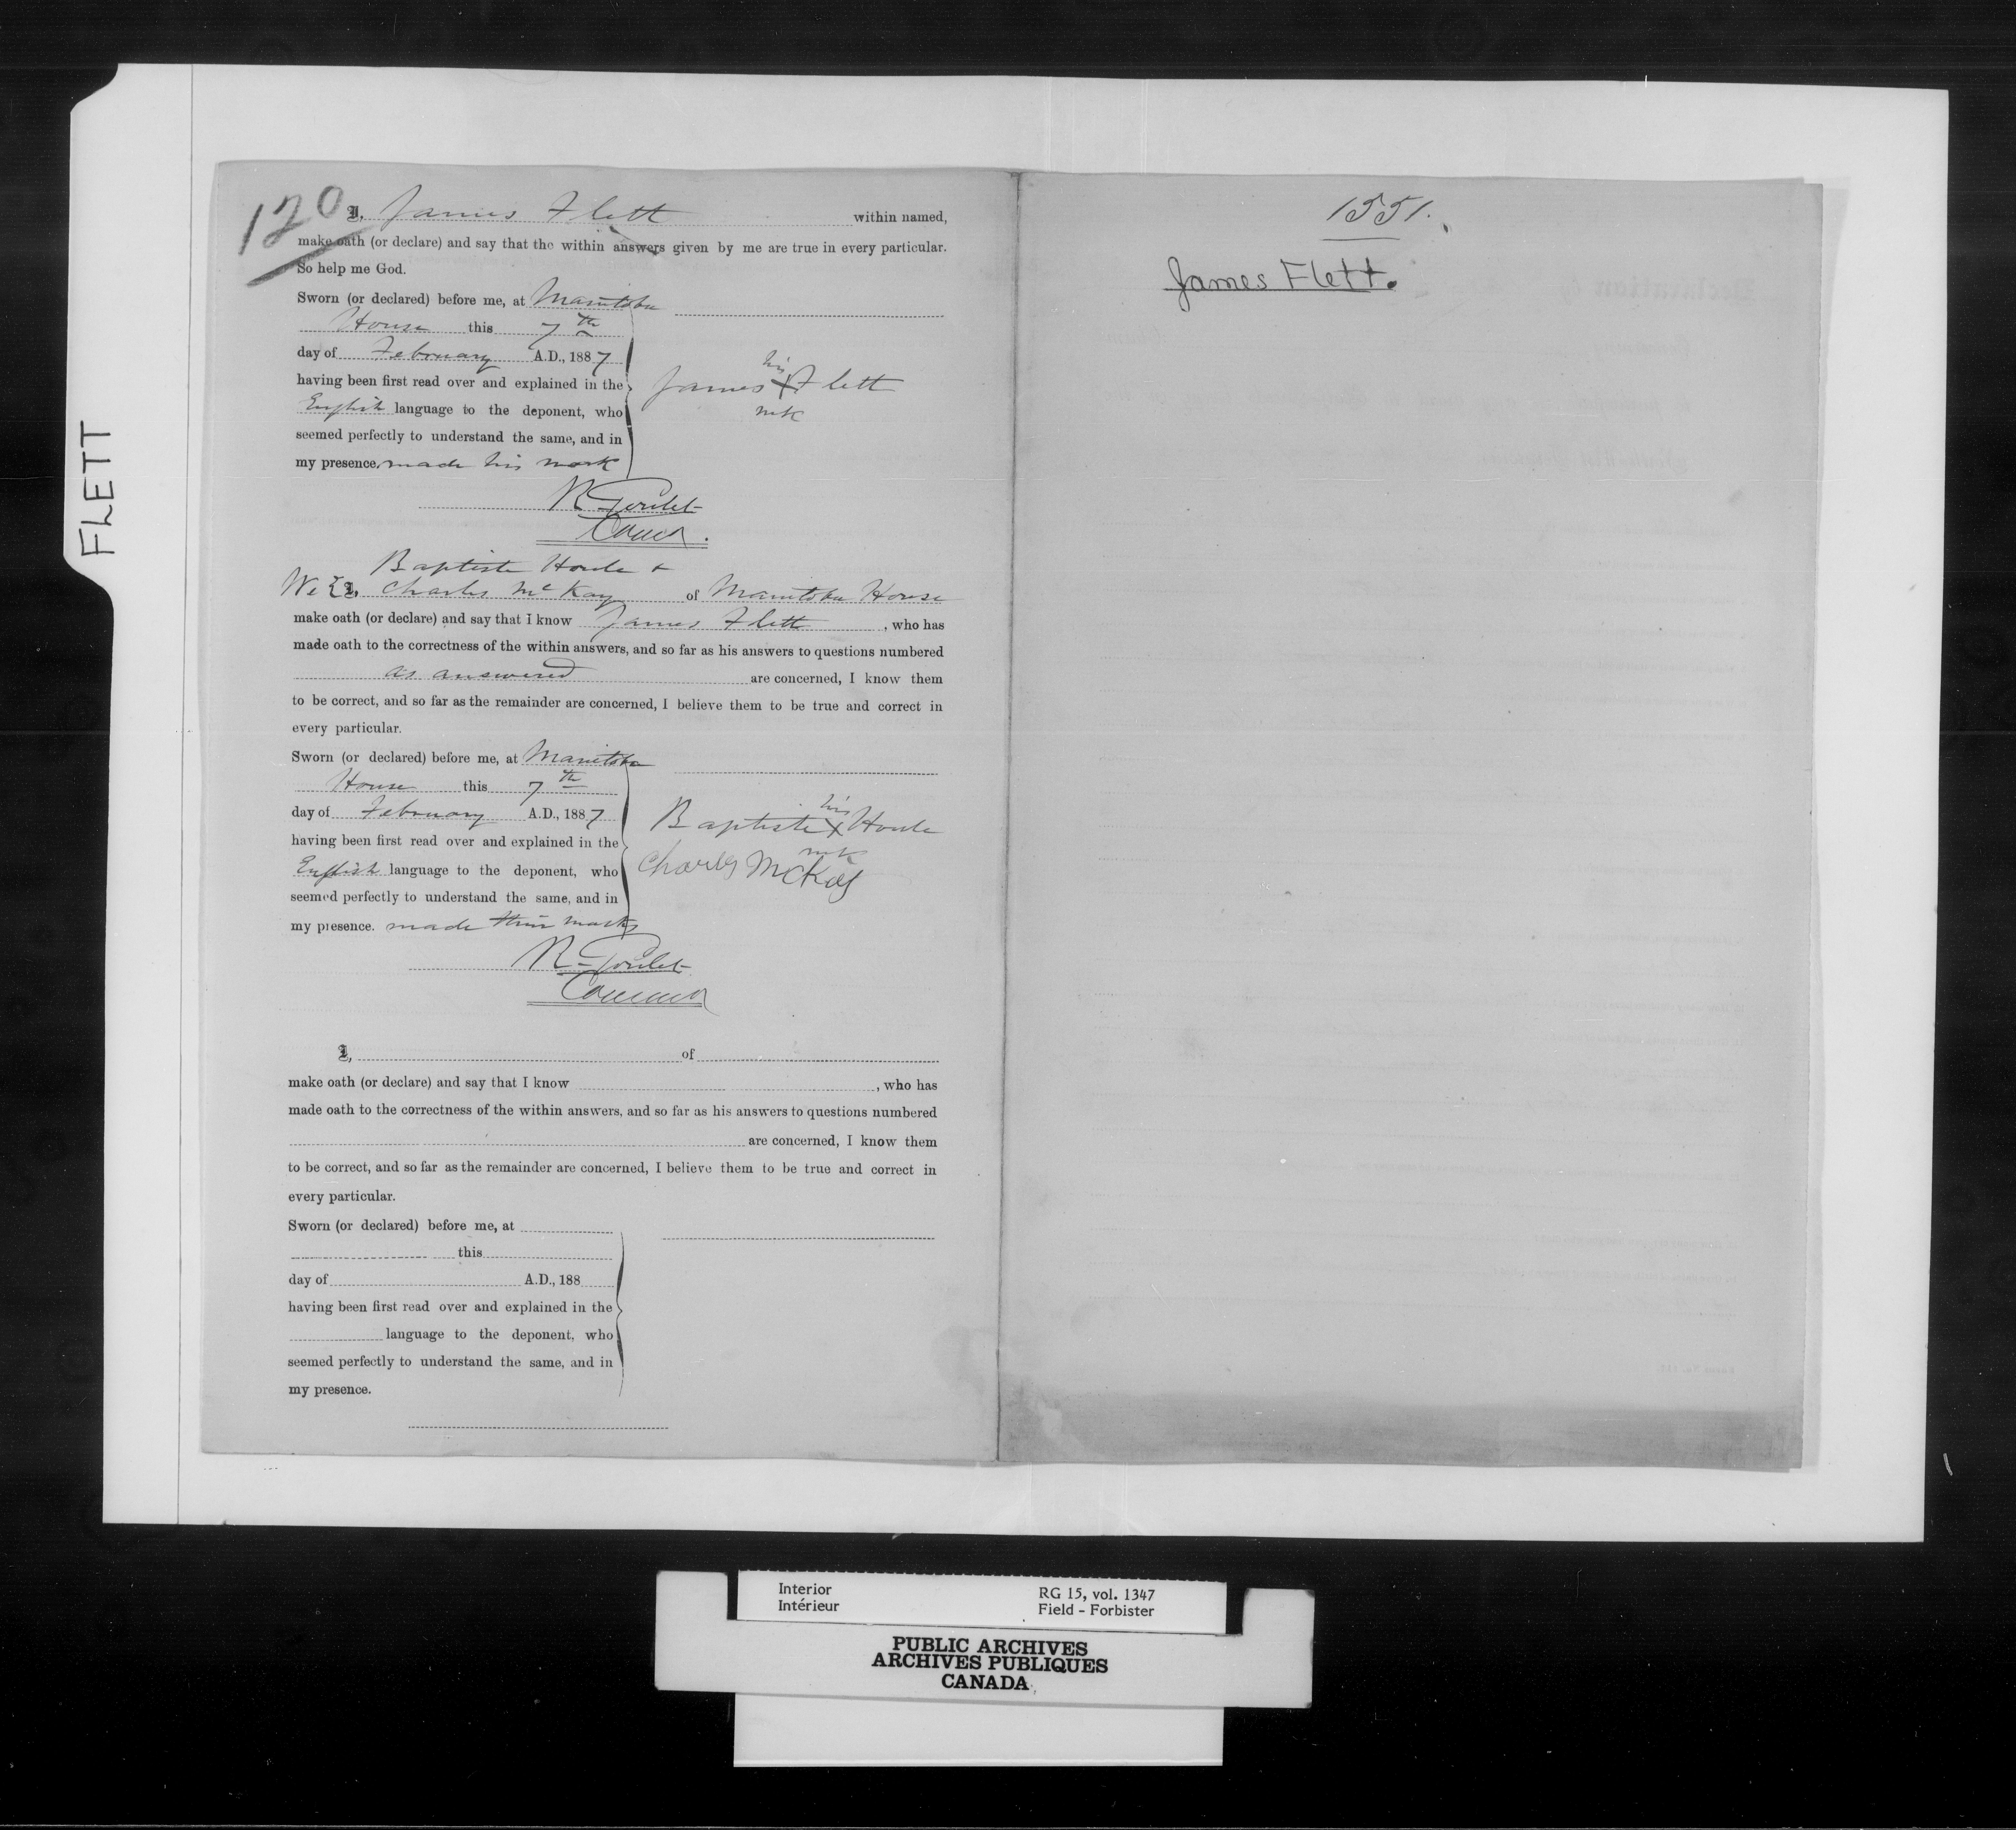 FLETT
120
I, James Flett within named,
make oath (or declare) and say that the within answers given by me are true in every particular.
So help me God.
Sworn (or declared) before me, at Manitoba
House this 7th
day of February A.D., 1887
having been first read over and explained in the
English language to the deponent, who
seemed perfectly to understand the same, and in
my presence, made his mark
his
James X Flett
mk
R Goulet
Baptiste Houle &
We { I, Charles McKay of Manitoba House
make oath (or declare) and say that I know James Flett, who has
made oath to the correctness of the within answers, and so far as his answers to questions numbered
as answered are concerned, I know them
to be correct, and so far as the remainder are concerned, I believe them to be true and correct in
every particular.
Sworn (or declared) before me, at Manitoba
House this 7th
day of February A.D., 1887
having been first read over and explained in the
English language to the deponent, who
seemed perfectly to understand the same, and in
my presence. made their marks
his
Baptiste X Houle
mk
Charles McKay
R Goulet
I, of
make oath (or declare) and say that I know , who has
made oath to the correctness of the within answers, and so far as his answers to questions numbered
are concerned, I know them
to be correct, and so far as the remainder are concerned, I believe them to be true and correct in
every particular.
Sworn (or declared) before me, at
this
day of A.D., 188
having been first read over and explained in the
language to the deponent, who
seemed perfectly to understand the same, and in
my presence.
1551.
James Flett.
Interior RG 15, vol. 1347
Intérieur Field - Forbister
PUBLIC ARCHIVES
ARCHIVES PUBLIQUES
CANADA